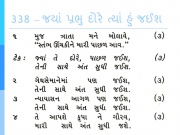 338 – જ્યાં પ્રભુ દોરે ત્યાં હું જઈશ
૧ મુજ ત્રાતા મને બોલાવે, (૩)
"સ્તંભ ઊંચકીને મારી પાછળ આવ."
ટેકઃ જ્યાં તે દોરે, પાછળ જઈશ, (૩)
તેની સાથે અંત સુધી જઈશ.
૨ ગેથસેમાનેમાં પણ જઈશ, (૩)
તેની સાથે અંત સુધી જઈશ.
૩ ન્યાયાસન આગળ પણ જઈશ, (૩)
તેની સાથે અંત સુધી જઈશ.
૪ તે આપશે કૃપા ને ગૌરવ, (૩)
મારી સાથે અંત સુધી જશે.